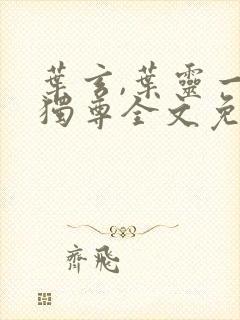 葉玄,葉靈一
獨尊全文免
齊飛